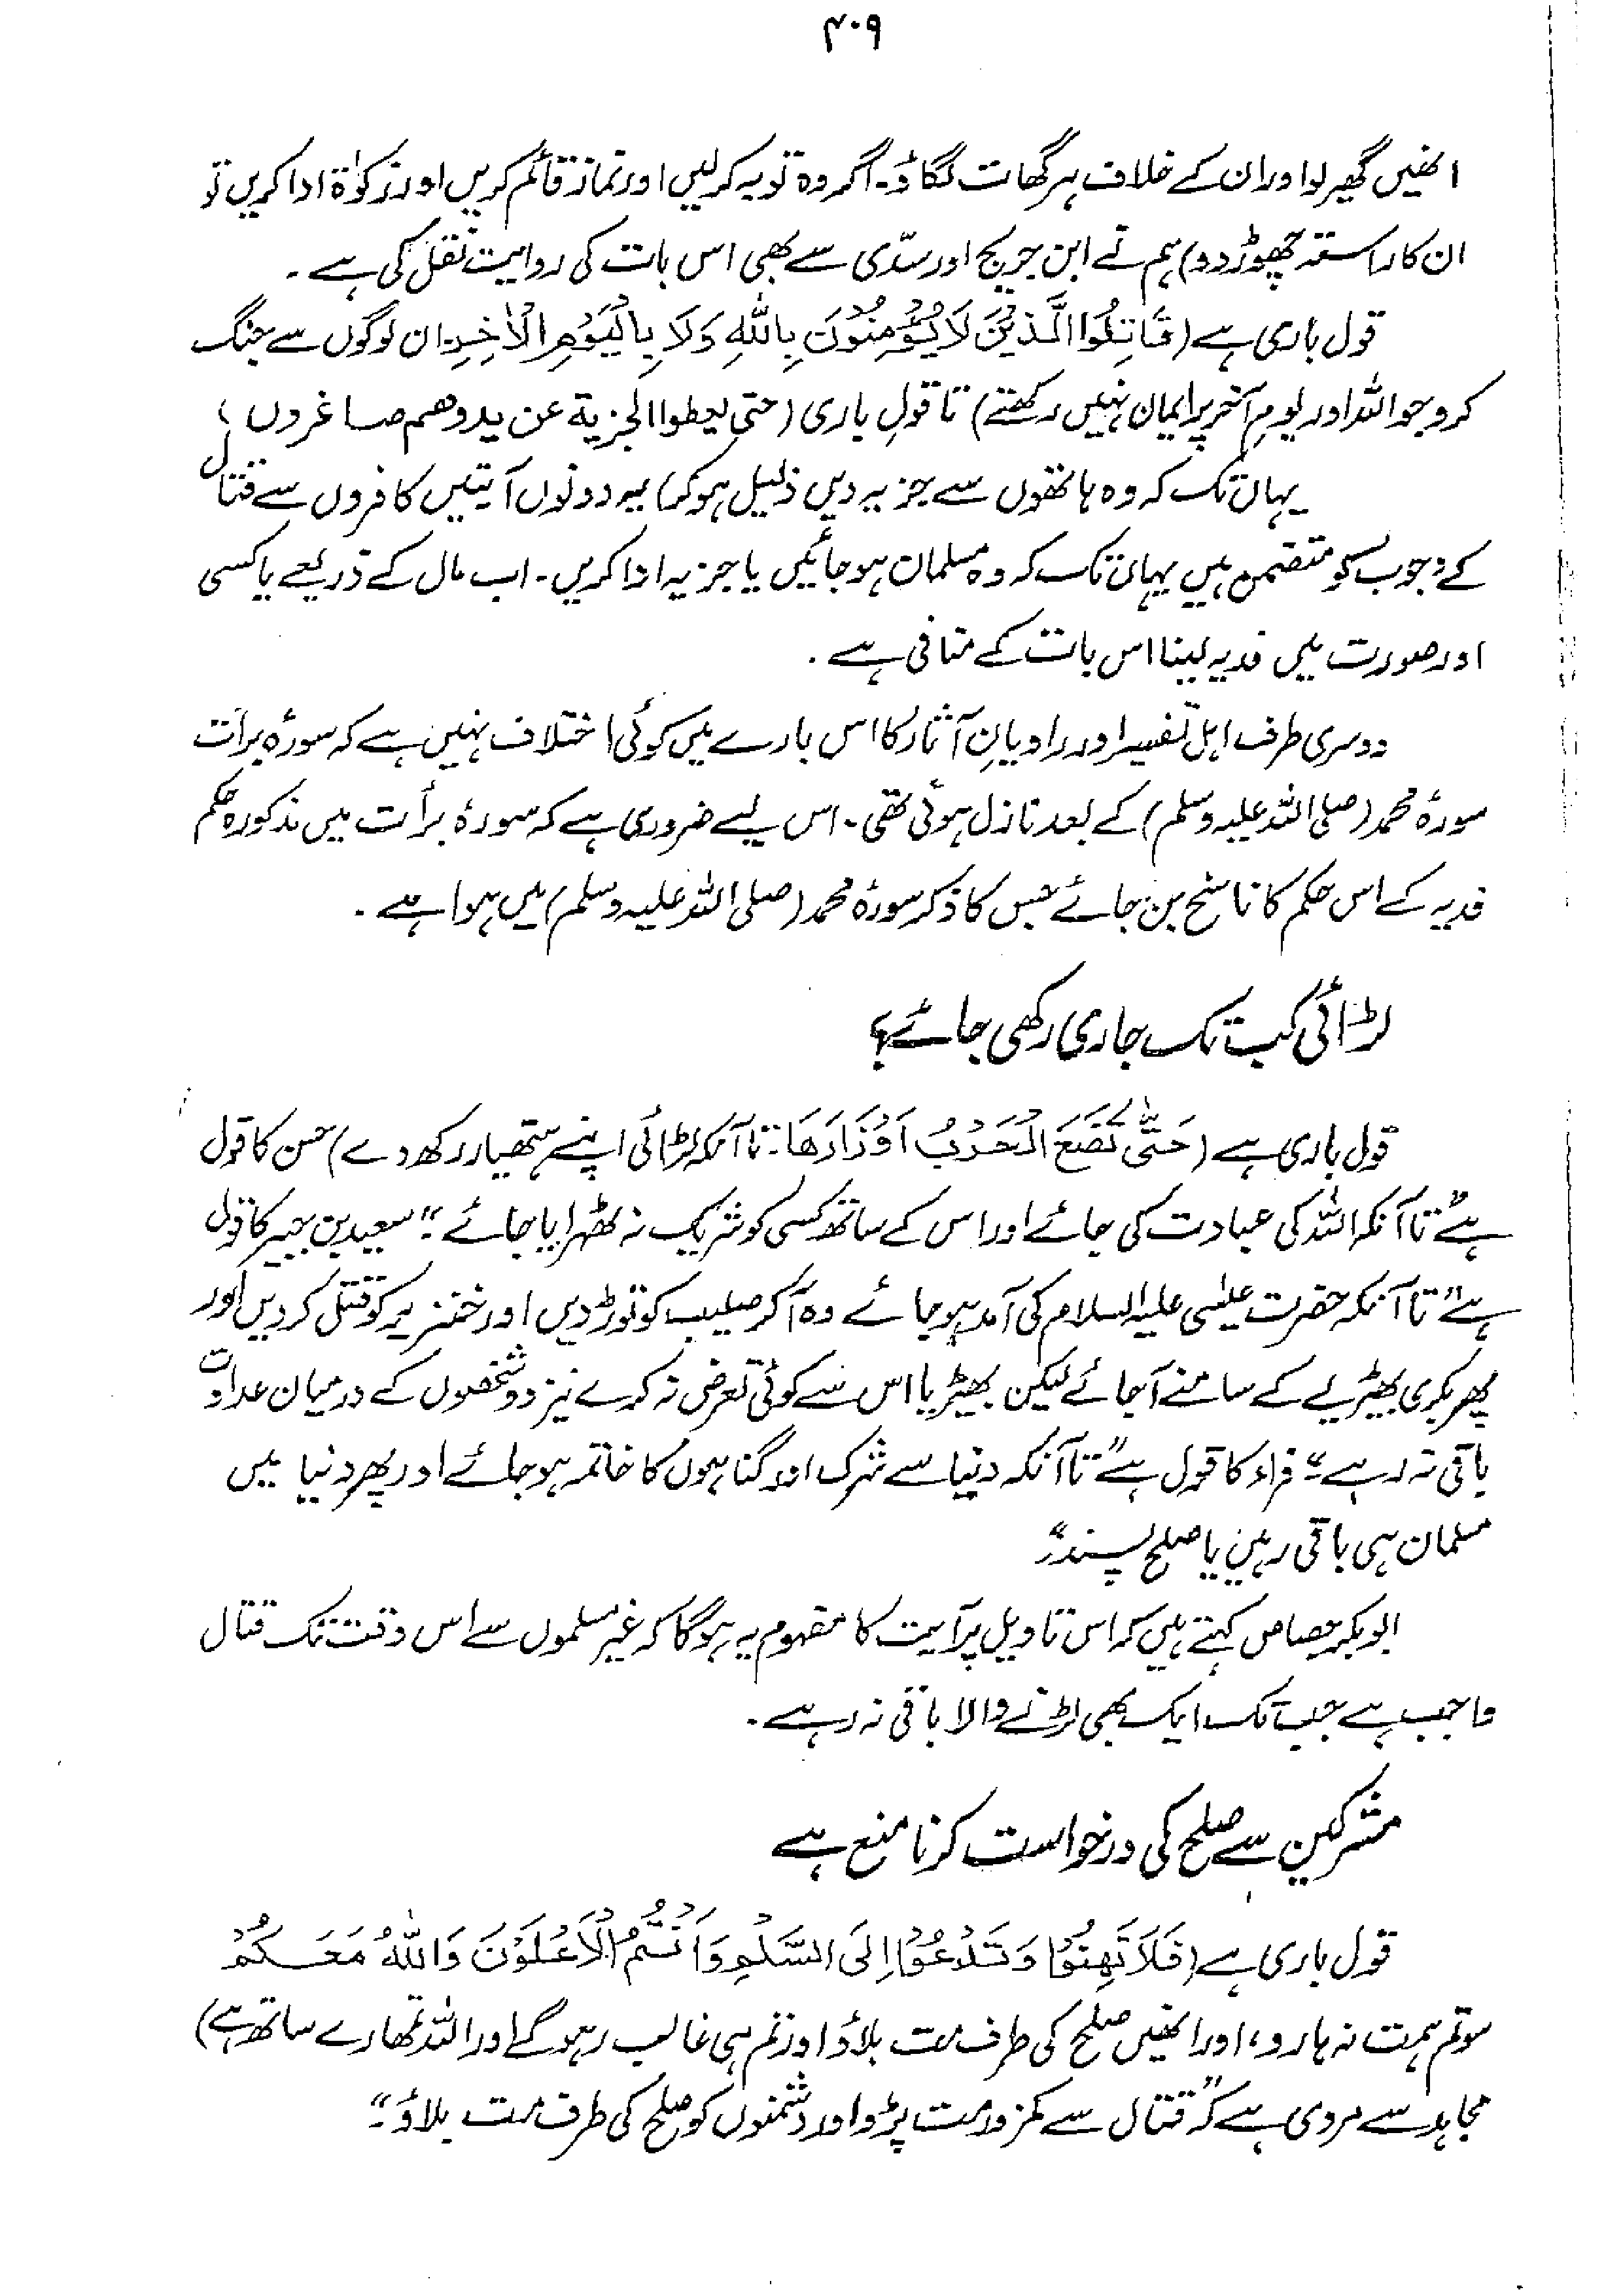 ۴۰۹
انھیں گھیر لو اور ان کے خلاف ہر گھات لگاؤ۔ اگر وہ توبہ کرلیں اور نماز قائم کریں اور زکوٰۃ ادا کریں تو
ان کا راستہ چھوڑ دو) ہم نے ابن جریج اور سدّی سے بھی اس بات کی روایت نقل کی ہے۔
قول باری ہے (قَاتِلُوا الَّذِیْنَ لَا یُؤْمِنُوْنَ بِاللّٰهِ وَلَا بِالْیَوْمِ الْاٰخِرِ۔ ان لوگوں سے جنگ
کرو جو اللہ اور یومِ آخر پر ایمان نہیں رکھتے) تا قولِ باری (حتی یعطوا الجزیة عن ید وھم صاغرون،
یہاں تک کہ وہ ہاتھوں سے جزیہ دیں ذلیل ہوکر) یہ دونوں آیتیں کافروں سے قتال
کے وجوب کو متضمن ہیں یہاں تک کہ وہ مسلمان ہو جائیں یا جزیہ ادا کریں۔ اب مال کے ذریعے یا کسی
اور صورت میں فدیہ لینا اس بات کے منافی ہے۔
دوسری طرف اہل تفسیر اور راویانِ آثار کا اس بارے میں کوئی اختلاف نہیں ہے کہ سورۂ برأت
سورۂ محمد (صلی اللہ علیہ وسلم) کے بعد نازل ہوئی تھی۔ اس لیے ضروری ہے کہ سورۂ برأت میں مذکورہ حکم
فدیہ کے اس حکم کا ناسخ بن جائے جس کا ذکر سورۂ محمد (صلی اللہ علیہ وسلم) میں ہوا ہے۔
لڑائی کب تک جاری رکھی جائے؟
قول باری ہے (حَتّٰی تَضَعَ الْحَرْبُ اَوْزَارَهَا۔ تا آنکہ لڑائی اپنے ہتھیار رکھ دے) حسن کا قول
ہے "تا آنکہ اللہ کی عبادت کی جائے اور اس کے ساتھ کسی کو شریک نہ ٹھہرایا جائے۔" سعید بن جبیر کا قول
ہے "تا آنکہ حضرت عیسٰی علیہ السلام کی آمد ہو جائے وہ آکر صلیب کو توڑ دیں اور خنزیر کو قتل کر دیں اور
پھر بکری بھیڑیے کے سامنے آجائے لیکن بھیڑیا اس سے کوئی تعرض نہ کرے نیز دو شخصوں کے درمیان عداوت
باقی نہ رہے۔" فراء کا قول ہے "تا آنکہ دنیا سے شرک اور گناہوں کا خاتمہ ہو جائے اور پھر دنیا میں
مسلمان ہی باقی رہیں یا صلح پسند۔"
ابوبکر جصاص کہتے ہیں کہ اس تاویل پر آیت کا مفہوم یہ ہوگا کہ غیر مسلموں سے اس وقت تک قتال
واجب ہے جب تک ایک بھی لڑنے والا باقی نہ رہے۔
مشرکین سے صلح کی درخواست کرنا منع ہے
قول باری ہے (فَلَا تَهِنُوْا وَتَدْعُوْا اِلَی السَّلْمِ وَاَنْتُمُ الْاَعْلَوْنَ وَاللّٰهُ مَعَكُمْ
سو تم ہمت نہ ہارو، اور انھیں صلح کی طرف مت بلاؤ اور تم ہی غالب رہو گے اور اللہ تمھارے ساتھ ہے)
مجاہد سے مروی ہے کہ "قتال سے کمزور مت پڑو اور دشمنوں کو صلح کی طرف مت بلاؤ۔"